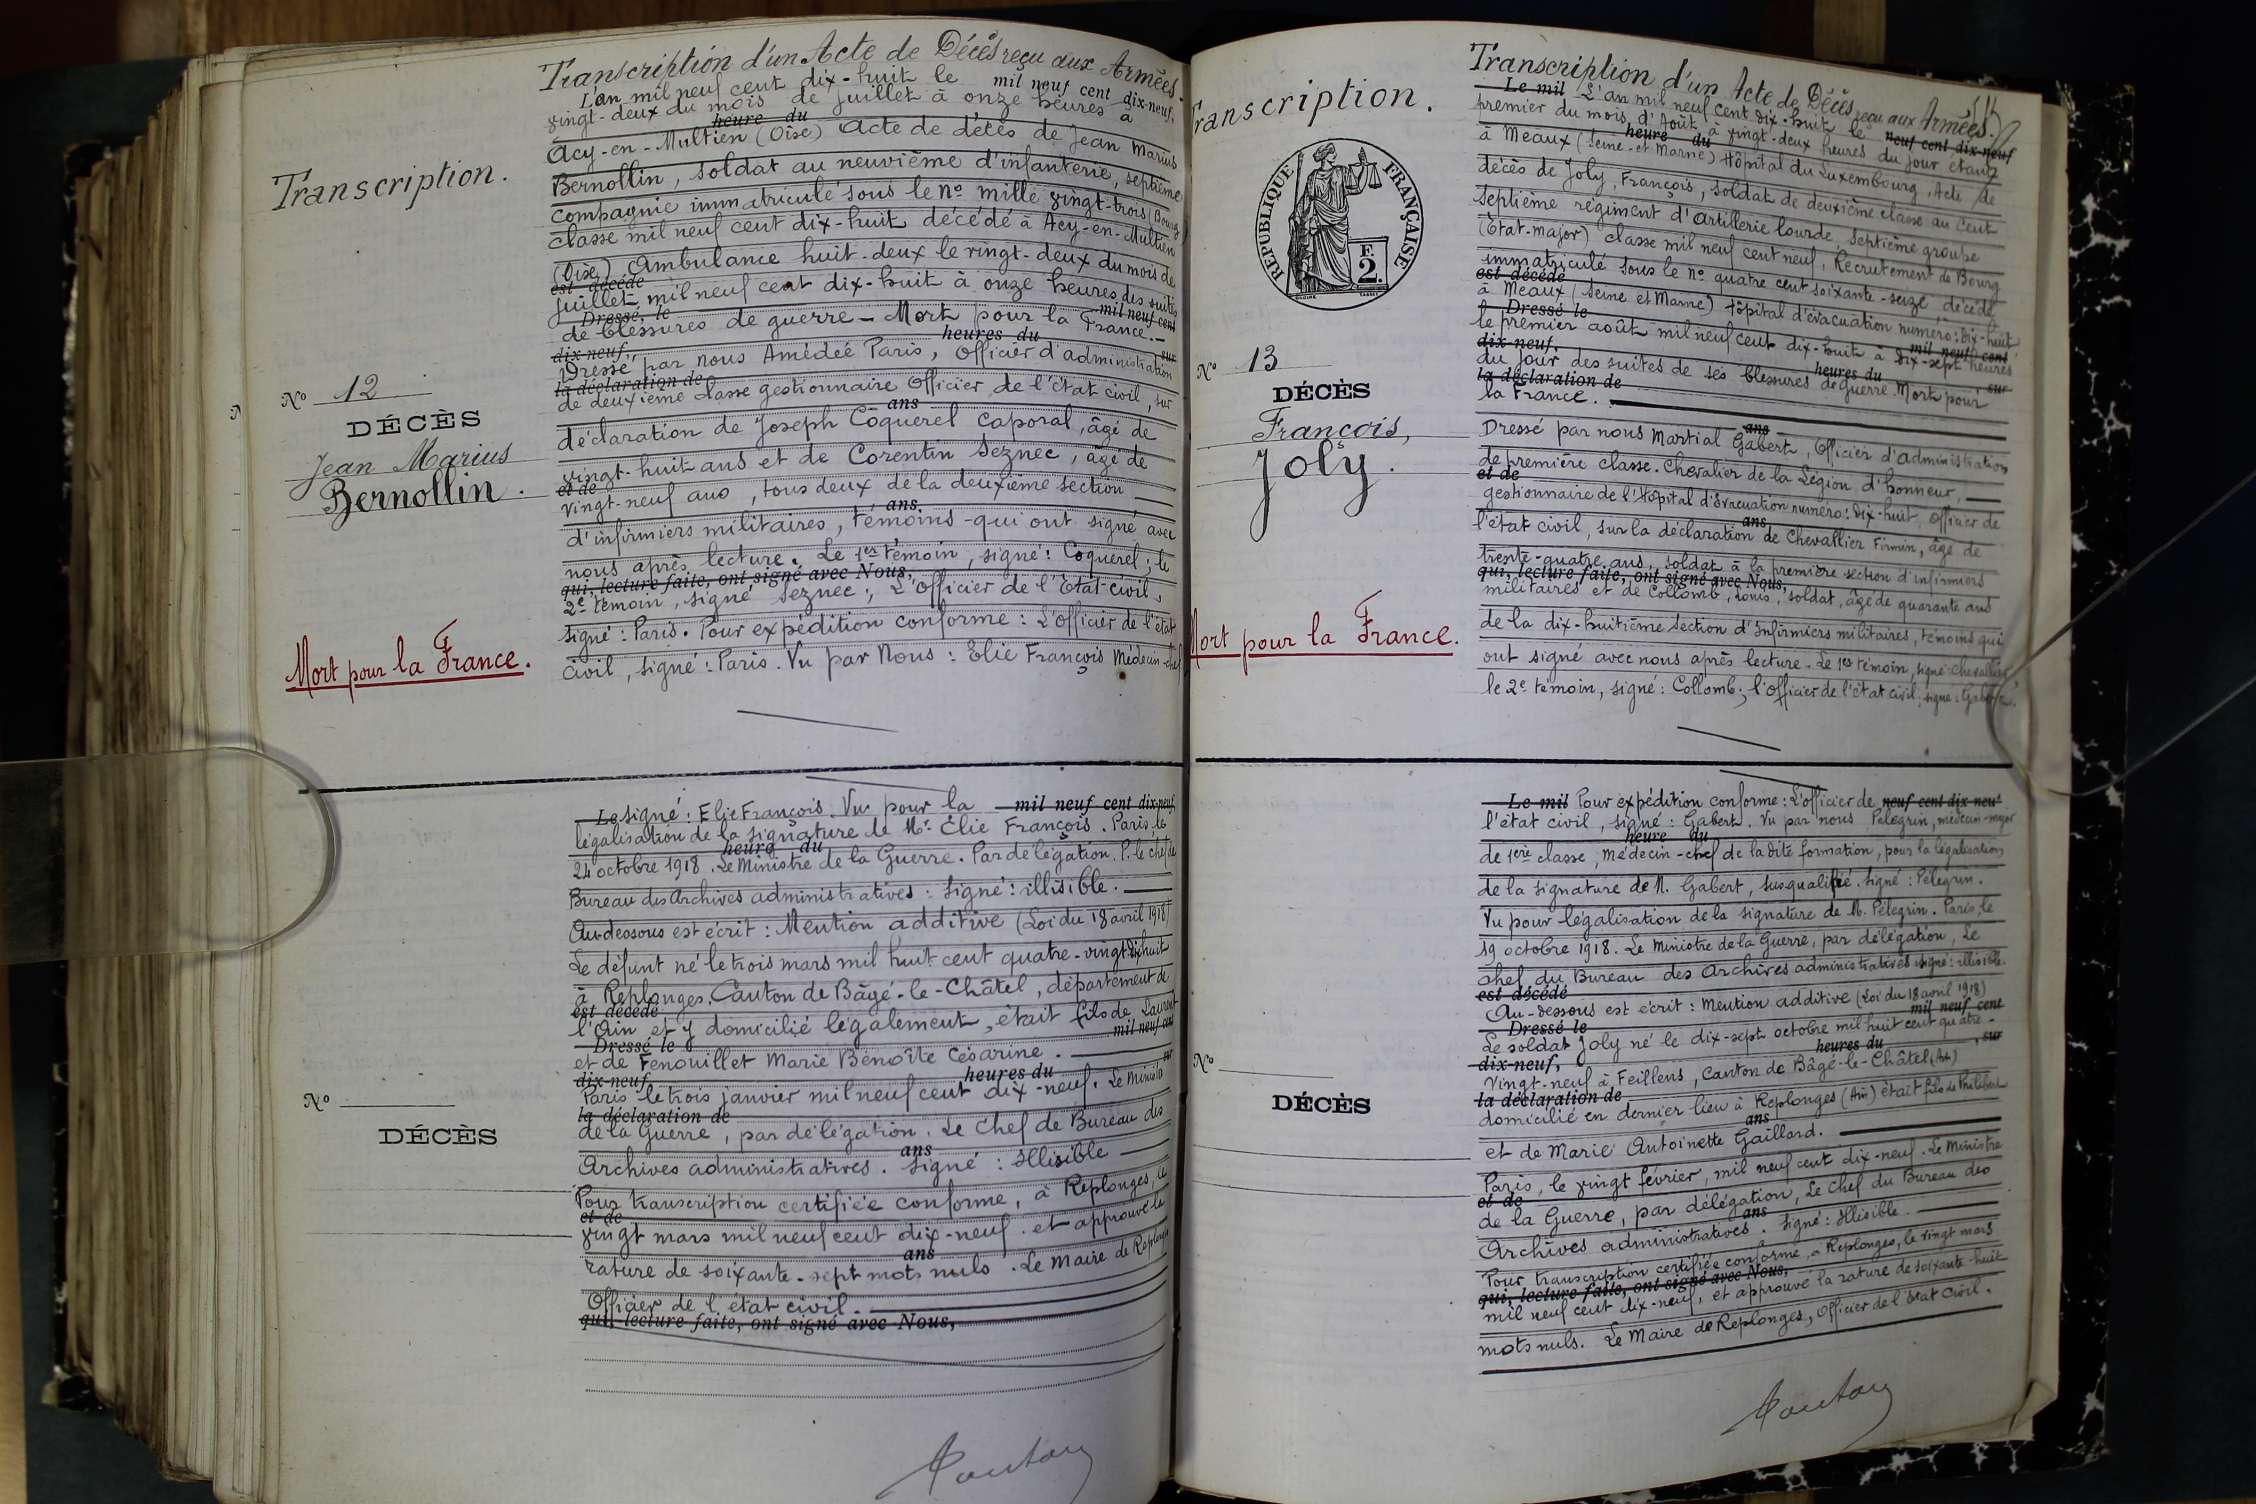 Transcription d'un Acte de Décès reçu aux Armées.
L'an mil neuf cent dix-huit le mil neuf cent dix-neuf,
vingt-deux du mois de juillet à onze heures à
heure du
Acy-en-Multien (Oise) Acte de décès de Jean Marius
Bernollin, soldat au neuvième d'infanterie, septième
compagnie immatriculé sous le no mille vingt-trois (Bourg
classe mil neuf cent dix-huit décédé à Acy-en-Multien
(Oise) Ambulance huit-deux le vingt-deux du mois de
est décédé
juillet mil neuf cent dix-huit à onze heures des suites
Dressé, le mil neuf cent
de blessures de guerre - Mort pour la France.-
dix-neuf, heures du sur
Dressé par nous Amédée Paris, Officier d'administration
la déclaration de
de deuxième classe gestionnaire Officier de l'état civil, sur
ans
déclaration de Joseph Coquerel caporal, âgé de
vingt-huit ans et de Corentin Seznec, âgé de
et de
vingt-neuf ans, tous deux de la deuxième section
ans
d'infirmiers militaires, témoins qui ont signé avec
nous après lecture. Le 1er témoin, signé: Coquerel; le
qui, lecture faite, ont signé avec Nous,
2e témoin, signé Seznec; L'Officier de l'Etat-civil,
signé: Paris. Pour expédition conforme: L'officier de l'état
civil, signé: Paris. Vu par Nous: Elie François Médecin-chef
Transcription.
No 12
DÉCÈS
Jean Marius
Bernollin.
Mort pour la France.
Le signé: Elie François. Vu pour la mil neuf cent dix-neuf,
légalisation de la signature de Mr. Elie François. Paris, le
heure du
24 octobre 1918. Le Ministre de la Guerre. Par délégation. P. le chef du
Bureau des Archives administratives: signé: illisible.
Au-dessous est écrit: Mention additive (Loi du 18 avril 1918)
Le défunt né le trois mars mil huit cent quatre-vingt dix huit
à Replonges, Canton de Bâgé-le-Châtel, département de
est décédé
l'Ain et y domicilié légalement, était fils de Laurent
Dressé le mil neuf cent
et de Fenouillet Marie Benoîte Césarine.
dix-neuf, heures du sur
Paris le trois janvier mil neuf cent dix-neuf. Le Ministre
la déclaration de
de la Guerre, par délégation. Le Chef de Bureau des
ans
Archives administratives. Signé: Illisible
Pour transcription certifiée conforme, à Replonges, le
et de
vingt mars mil neuf cent dix-neuf. et approuvé la
ans
rature de soixante-sept mots nuls. Le Maire de Replonges
Officier de l'état civil.
qui, lecture faite, ont signé avec Nous,
No
DÉCÈS
Transcription d'un Acte de Décès reçu aux Armées.
Le mil L'an mil neuf cent dix-huit le neuf cent dix-neuf
premier du mois d'Août à vingt-deux heures du jour étant
heure du
à Meaux (Seine-et-Marne) Hôpital du Luxembourg, Acte de
décès de Joly, François, soldat de deuxième classe au cent
septième régiment d'artillerie lourde, septième groupe
(Etat-major) classe mil neuf cent neuf, Recrutement de Bourg
immatriculé sous le no quatre cent soixante-seize, décédé
est décédé
à Meaux (Seine et Marne) Hôpital d'évacuation numéro: Dix-huit
Dressé le
le premier août mil neuf cent dix-huit à dix-sept heures
dix-neuf, mil neuf cent
du jour des suites de ses blessures de guerre. Mort pour
la déclaration de heures du sur
la France.
Dressé par nous Martial Gabert, Officier d'administration
ans
de première classe. Chevalier de la Légion d'honneur,
et de
gestionnaire de l'Hôpital d'évacuation numéro: Dix-huit, Officier de
l'état civil, sur la déclaration de Chevallier Firmin, âgé de
ans
trente-quatre ans, soldat à la première section d'infirmiers
qui, lecture faite, ont signé avec Nous,
militaires et de Collomb, Louis, soldat, âgé de quarante ans
de la dix-huitième section d'Infirmiers militaires, témoins qui
ont signé avec nous après lecture. Le 1er témoin, signé: Chevallier
le 2e témoin, signé: Collomb; l'officier de l'état civil, signé: Gabert.
Transcription.
RÉPUBLIQUE FRANÇAISE
E
2.
No 13
DÉCÈS
François,
Joly.
Mort pour la France.
Le mil Pour expédition conforme: L'officier de neuf cent dix-neuf
l'état civil, signé: Gabert. Vu par nous Pélegrin, médecin-major
heure du
de 1ère classe, médecin-chef de la dite formation, pour la légalisation
de la signature de M. Gabert, susqualifié. signé: Pélegrin.
Vu pour légalisation de la signature de M. Pélegrin. Paris, le
19 octobre 1918. Le Ministre de la Guerre, par délégation, Le
chef du Bureau des Archives administratives signé: illisible.
est décédé
Au-dessous est écrit: Mention additive (Loi du 18 avril 1918)
Dressé le mil neuf cent
Le soldat Joly né le dix-sept octobre mil huit cent quatre-
dix-neuf, heures du , sur
vingt-neuf à Feillens, canton de Bâgé-le-Châtel (Ain)
la déclaration de
domicilié en dernier lieu à Replonges (Ain) était fils de Philibert
ans
et de Marie Antoinette Gaillard.
Paris, le vingt février, mil neuf cent dix-neuf. Le Ministre
et de
de la Guerre, par délégation, Le Chef du Bureau des
ans
Archives administratives. Signé: Illisible.
Pour transcription certifiée conforme, à Replonges, le vingt mars
qui, lecture faite, ont signé avec Nous,
mil neuf cent dix-neuf, et approuvé la rature de soixante-huit
mots nuls. Le Maire de Replonges, Officier de l'état civil.
No
DÉCÈS